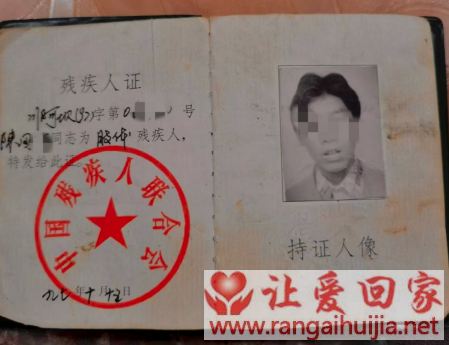 残疾人证
字第0 号
同志为肢体残疾人,
特发给此证。
中国残疾人联合会
九七年十月十五日
持证人像
让爱回家
www.rangaihuijia.net